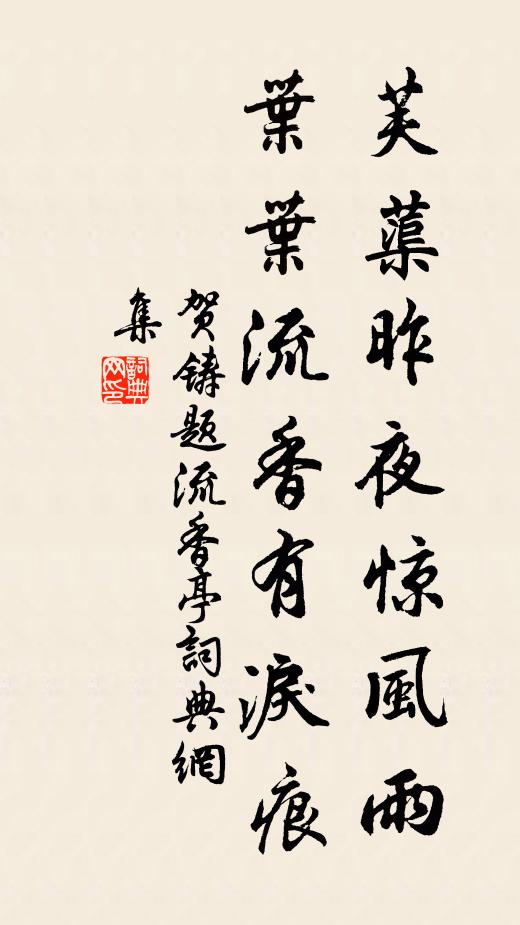 芙蕖昨夜惊風雨
葉葉流香有淚痕
贺鑄题流香亭詞典網
集
詞典网印